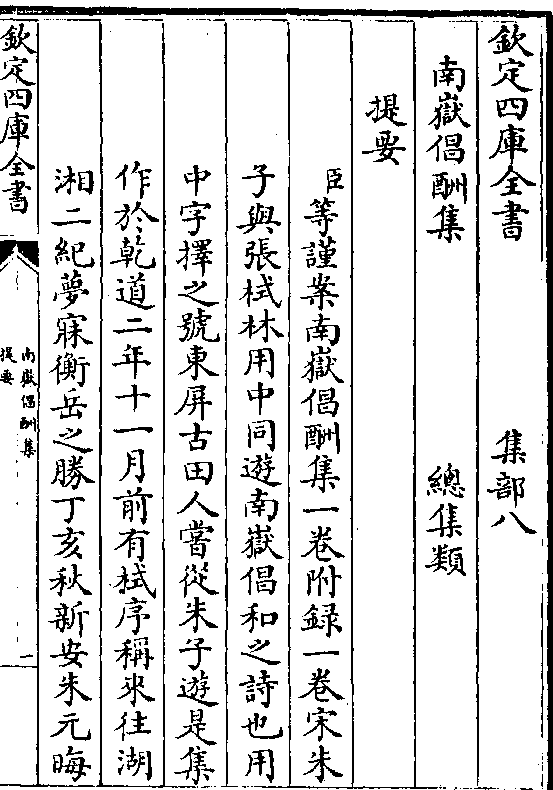 欽定四庫全書　集部八
南嶽倡酬集　總集類
提要
臣等謹案南嶽倡酬集一卷附録一卷宋朱
子與張栻林用中同遊南嶽倡和之詩也用
中字擇之號東屏古田人嘗從朱子遊是集
作於乾道二年十一月前有栻序稱來往湖
湘二紀夢寐衡岳之勝丁亥秋新安朱元晦
欽定四庫全書
南嶽倡酬集
提要
一